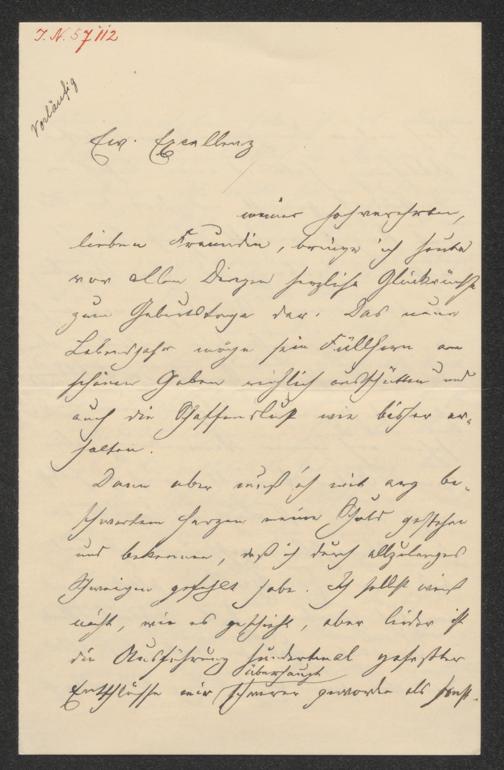 I. N. 57112
Vorläufig
Ew. Excellenz
meiner hochverehrten,
lieben Freundin, bringe ich heute
vor allen Dingen herzliche Glückwünsche
zum Geburtstage dar. Das neue
Lebensjahr möge sein Füllhorn an
schönen Gaben reichlich ausschütten und
auch die Schaffenslust wie bisher er-
halten.
Dann aber muß ich mit arg be-
schwertem Herzen meine Schuld gestehen
und bekennen, daß ich durch allzulanges
Schweigen gefehlt habe. Ich selbst weiß
nicht, wie es geschieht, aber leider ist
die Ausführung hundertmal gefaßter
überhaupt
Entschlüsse mir schwerer geworden als sonst.